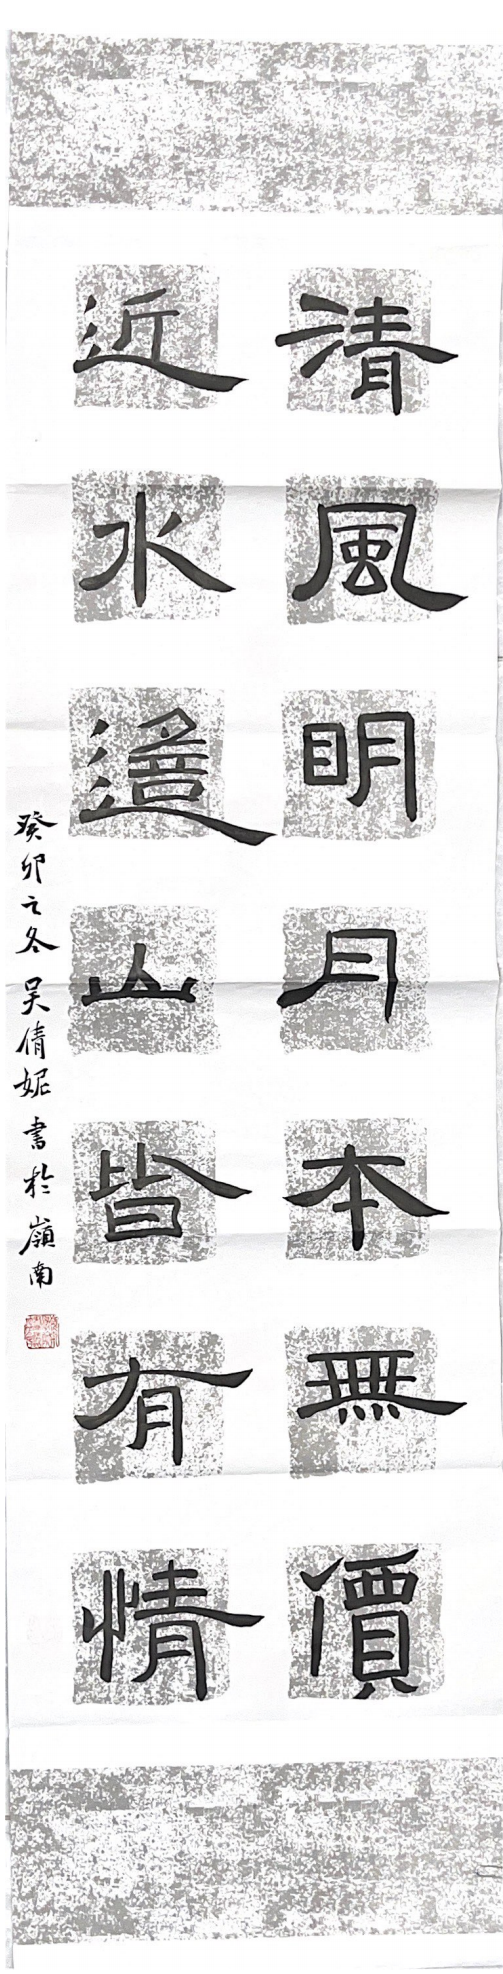 清風明月本無價
近水遙山皆有情
癸卯之冬 吴倩妮書於嶺南